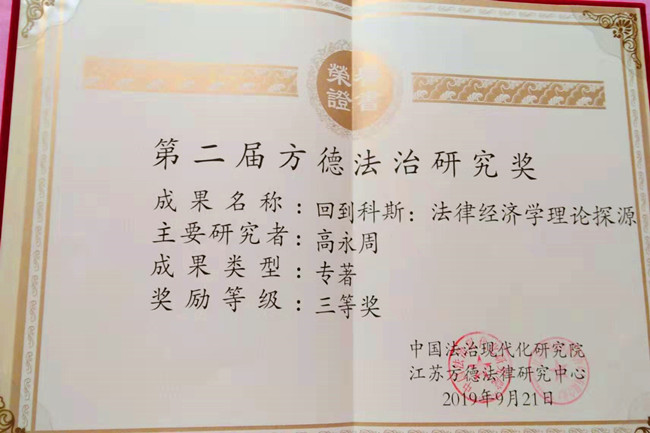 榮譽
證書
第二届方德法治研究奖
成果名称：回到科斯：法律经济学理论探源
主要研究者：高永周
成果类型：专著
奖励等级：三等奖
中国法治现代化研究院
江苏方德法律研究中心
2019年9月21日